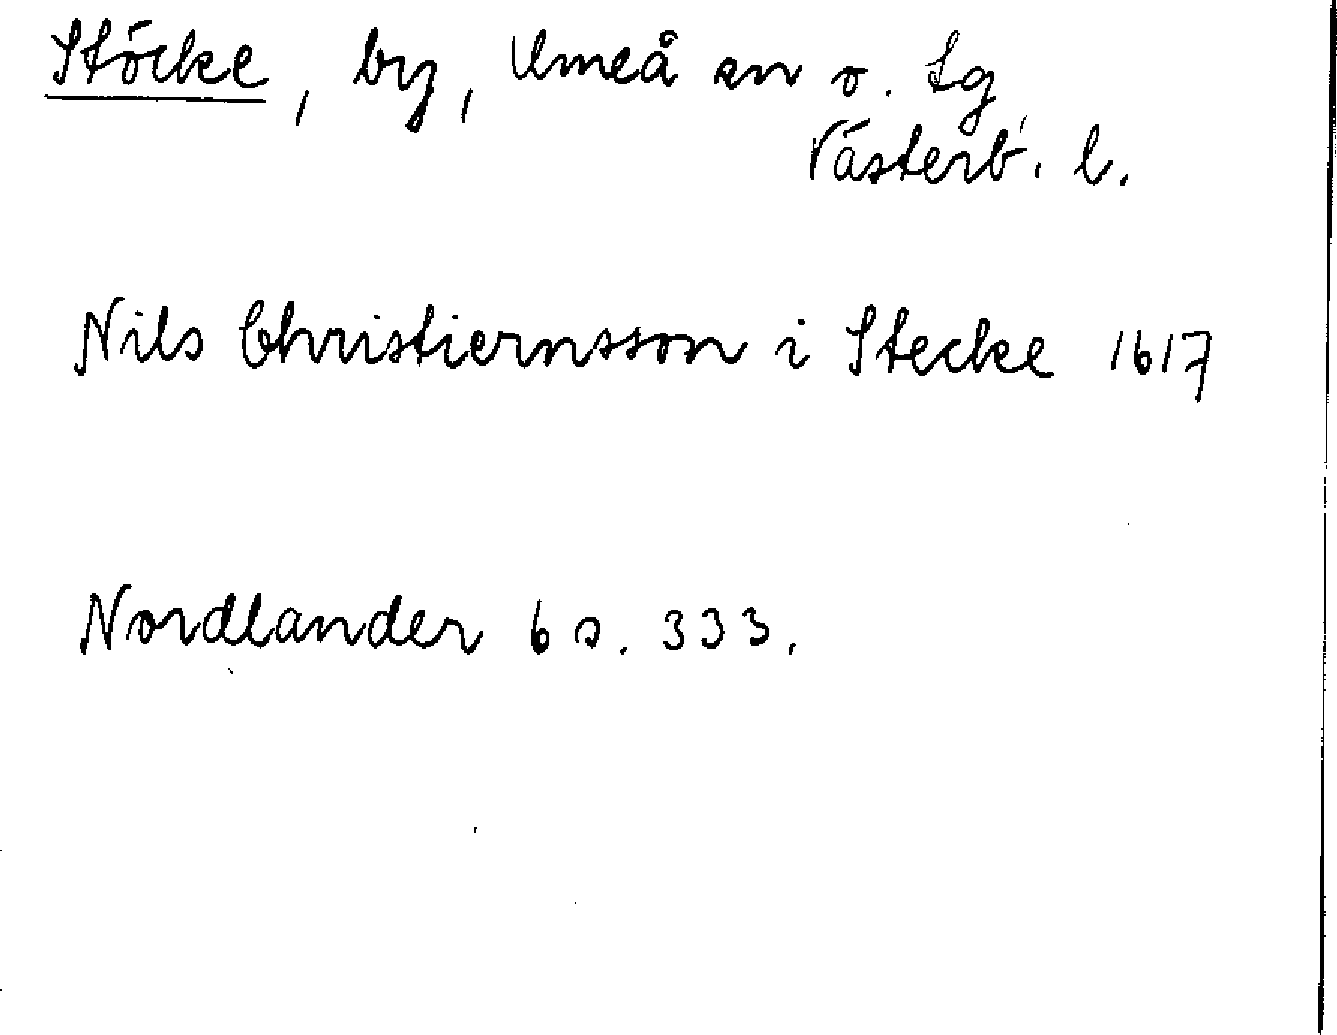 Stöcke, by, Umeå sn o. tg
Västerb. l.
Nils Christiernsson i Stecke 1617
Nordlander 6 s. 333.